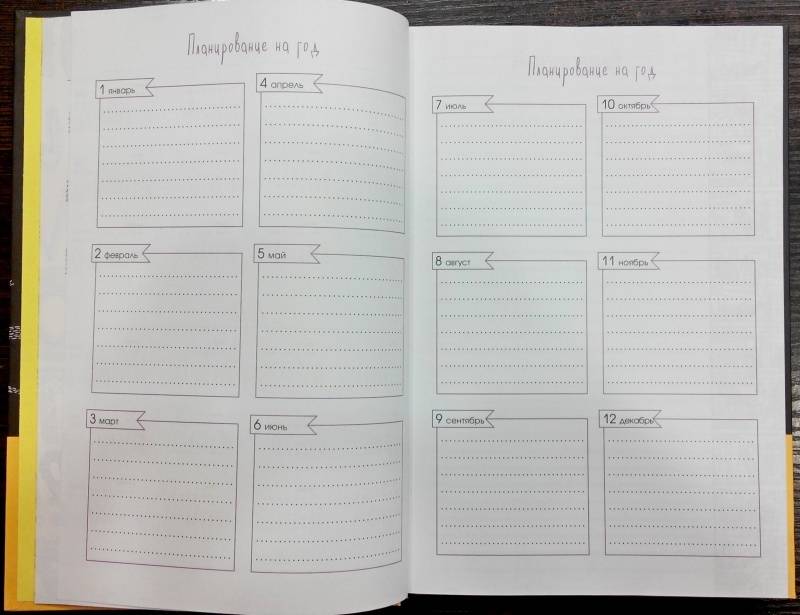 Планирование на год
1 январь
2 февраль
3 март
4 апрель
5 май
6 июнь
Планирование на год
7 июль
8 август
9 сентябрь
10 октябрь
11 ноябрь
12 декабрь